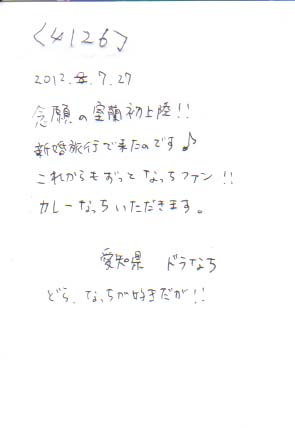 <4126>
2012.7.27
念願の室蘭初上陸!!
新婚旅行で来たのです♪
これからもずっと なっちファン!!
カレーなっちいただきます。
愛知県 ドラなち
どら、なっちが好きだが!!